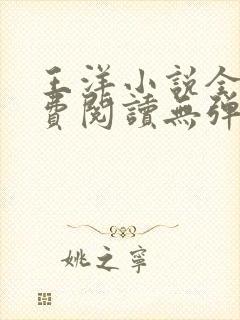 王洋小說全
費閱讀無彈
姚之寧